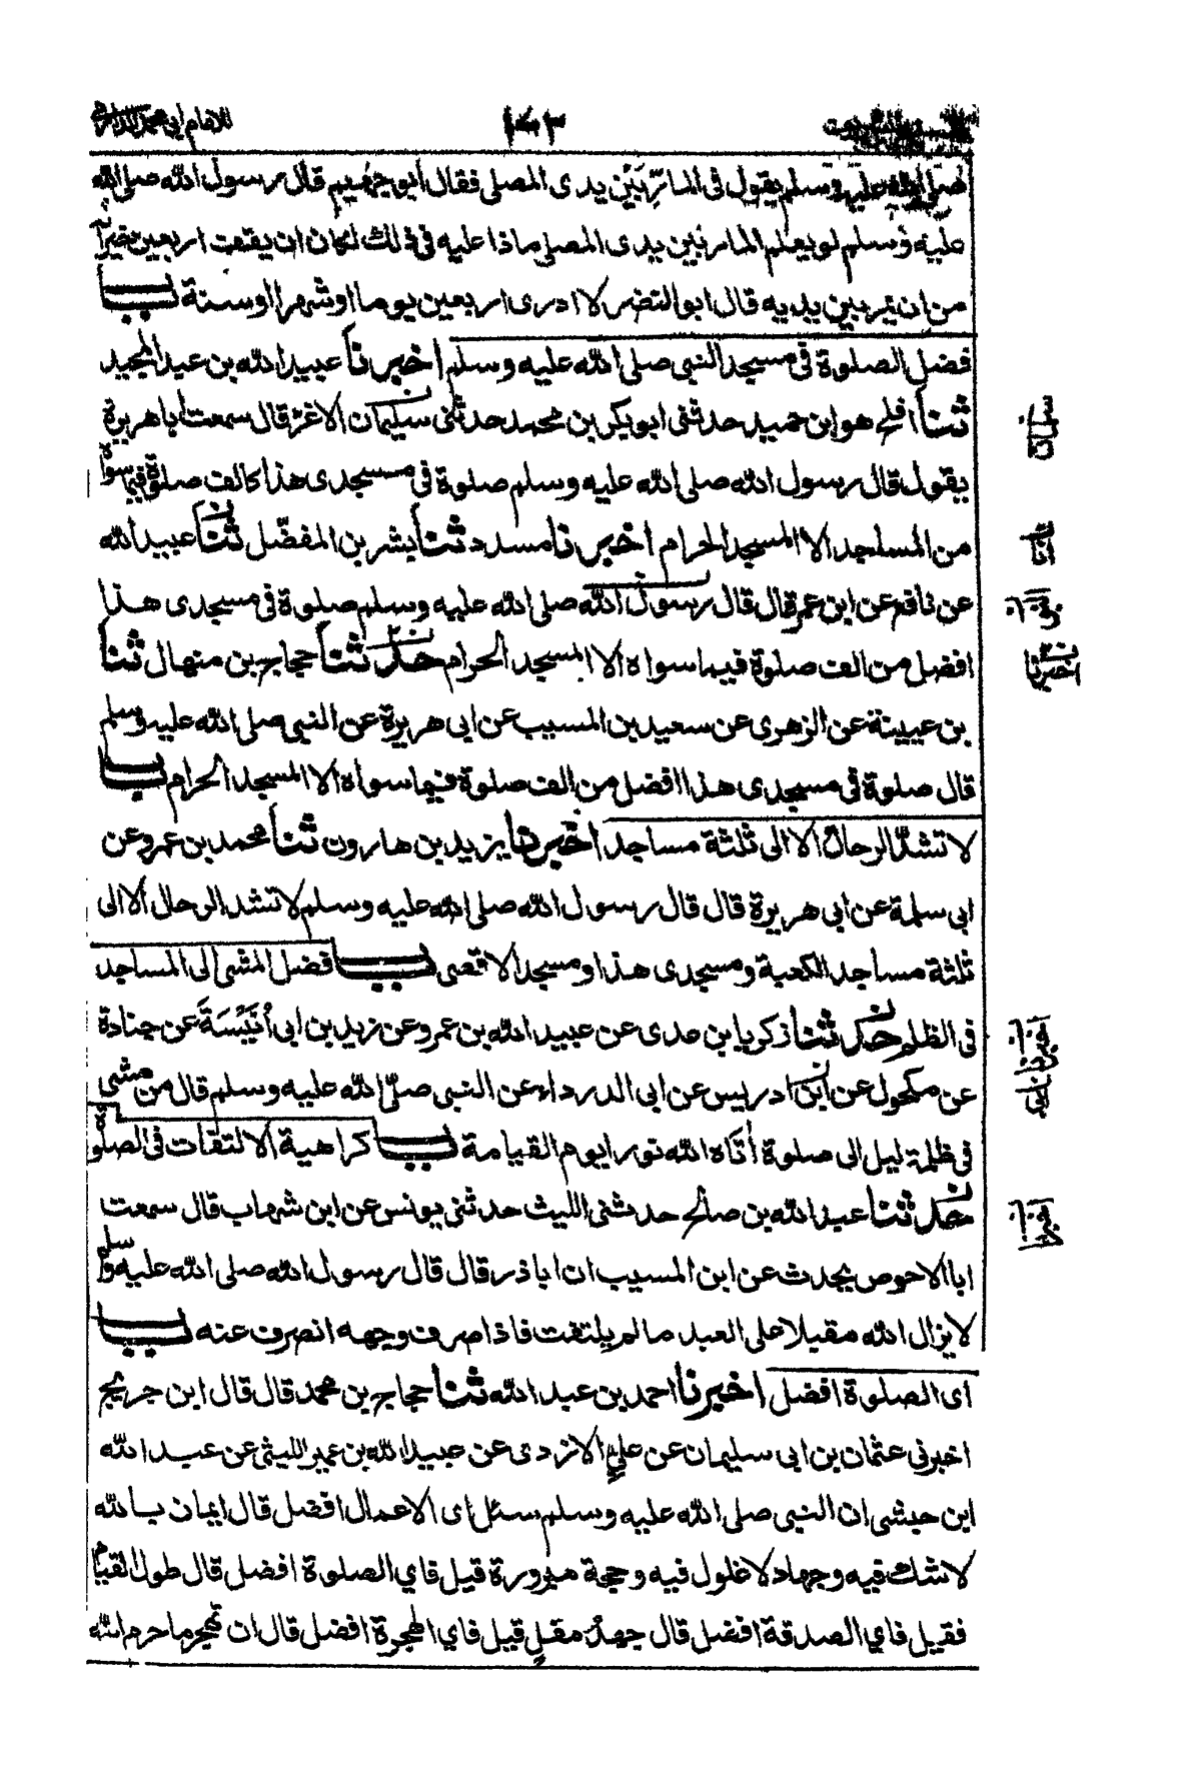 للامام ابى محمد الدارمى
١٤٣
صلى الله عليه وسلم يقول فى المارّ بَيْن يدى المصلى فقال ابو جهيم قال رسول الله صلى الله
عليه وسلم لو يعلم المار بين يدى المصلى ماذا عليه فى ذلك لكان ان يقف اربعين خيراً له
من ان يمر بين يديه قال ابو النضر لا ادرى اربعين يوما او شهرا او سنة باب
فضل الصلوة فى مسجد النبى صلى الله عليه وسلم اخبرنا عبيد الله بن عبد المجيد
ثنا افلح هو ابن حميد حدثنى ابو بكر بن محمد حدثنى سليمان الاغر قال سمعت ابا هريرة
يقول قال رسول الله صلى الله عليه وسلم صلوة فى مسجدى هذا كالف صلوة فيما سواه
من المساجد الا المسجد الحرام اخبرنا مسدد ثنا بشر بن المفضّل ثنا عبيد الله
عن نافع عن ابن عمر قال قال رسول الله صلى الله عليه وسلم صلوة فى مسجدى هذا
افضل من الف صلوة فيما سواه الا المسجد الحرام حدثنا حجاج بن منهال ثنا
بن عيينة عن الزهرى عن سعيد بن المسيب عن ابى هريرة عن النبى صلى الله عليه وسلم
قال صلوة فى مسجدى هذا افضل من الف صلوة فيما سواه الا المسجد الحرام باب
لا تشدّ الرحال الا الى ثلثة مساجد اخبرنا يزيد بن هارون ثنا محمد بن عمرو عن
ابى سلمة عن ابى هريرة قال قال رسول الله صلى الله عليه وسلم لا تشد الرحال الا الى
ثلثة مساجد الكعبة ومسجدى هذا ومسجد الاقصى باب فضل المشى الى المساجد
فى الظلم حدثنا زكريا بن عدى عن عبيد الله بن عمرو عن زيد بن ابى أُنَيْسَةَ عن جنادة
عن مكحول عن ابى ادريس عن ابى الدرداء عن النبى صلّى الله عليه وسلم قال من مشى
فى ظلمة ليل الى صلوة أتَاه الله نورا يوم القيامة باب كراهية الالتفات فى الصلوة
حدثنا عبد الله بن صالح حدثنى الليث حدثنى يونس عن ابن شهاب قال سمعت
ابا الاحوص يحدث عن ابن المسيب ان ابا ذر قال قال رسول الله صلى الله عليه وسلم
لا يزال الله مقبلا على العبد ما لم يلتفت فاذا صرف وجهه انصرف عنه باب
اى الصلوة افضل اخبرنا احمد بن عبد الله ثنا حجاج بن محمد قال قال ابن جريج
اخبرنى عثمان بن ابى سليمان عن علىٍّ الازدى عن عبيد الله بن عمير الليثى عن عبد الله
ابن حبشى ان النبى صلى الله عليه وسلم سئل اى الاعمال افضل قال ايمان بالله
لا شك فيه وجهاد لا غلول فيه وحجة مبرورة قيل فاي الصلوة افضل قال طول القيام
فقيل فاي الصدقة افضل قال جهدُ مقلٍ قيل فاي الهجرة افضل قال ان تهجر ما حرم الله
سلمان
انا
اخبرنا